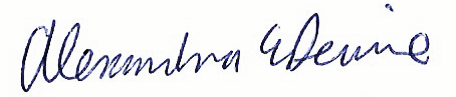 Alexandra E Devine